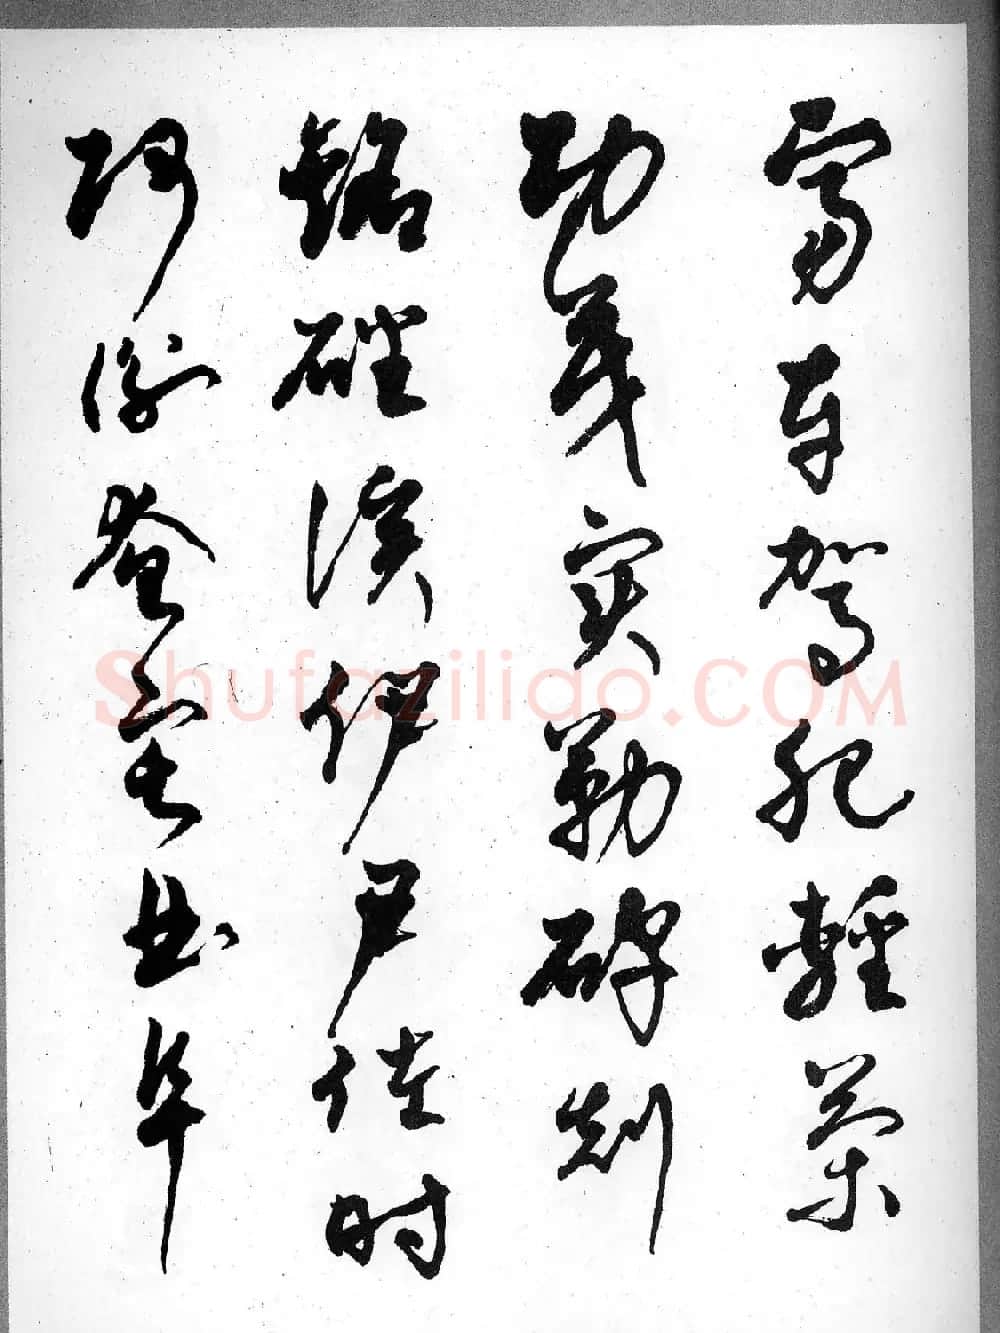 富车驾肥轻策
功茂实勒碑刻
铭磻溪伊尹佐时
阿衡奄宅曲阜
Shufaziliao.COM